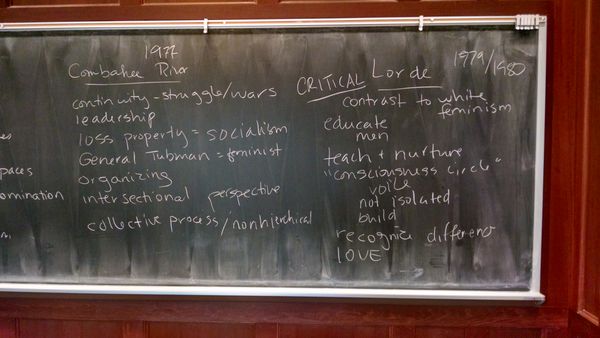 es
paces
omination
1977
Combahee River
continuity - struggle/wars
leadership
loss property = socialism
General Tubman = feminist
organizing
intersectional perspective
collective process/nonhierchical
CRITICAL Lorde 1979/1980
contrast to white
feminism
educate
men
teach + nurture
"consciousness circle"
voice
not isolated
build
recognize difference
LOVE